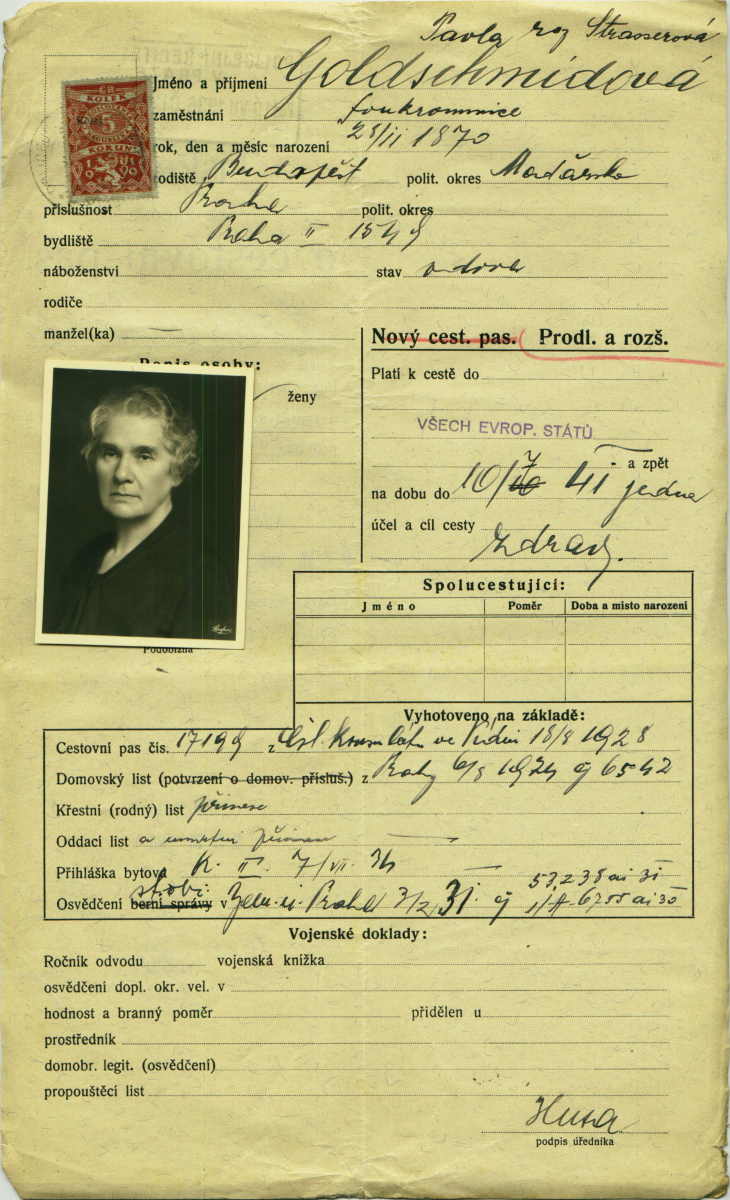 Pavla roz Strasserová
Jméno a příjmení Goldschmidová
zaměstnání soukromnice
rok, den a měsíc narození 28/II 1870
rodiště Budapešť polit. okres Maďarsko
příslušnost Praha polit. okres
bydliště Praha II 1549
náboženství stav vdova
rodiče
manžel(ka) —
KOLEK
5
KORUN
1919
Popis osoby:
ženy
Podobizna
Nový cest. pas. Prodl. a rozš.
Platí k cestě do
VŠECH EVROP. STÁTŮ
a zpět
na dobu do 10/ 41 jedna
účel a cíl cesty zdrav.
Spolucestující:
Jméno Poměr Doba a místo narození
Vyhotoveno na základě:
Cestovní pas čís. 17199 z čsl. ve Vídni 18/8 1928
Domovský list (potvrzení o domov. přísluš.) z Prahy 6/8 1924 čj 6542
Křestní (rodný) list přinese
Oddací list a úmrtní přinese —
Přihláška bytová K. II. 7/VII. 36 —
Osvědčení berní správy v Zem. ú. Praha 3/2 31. čj 53.238 ai 31
6755 ai 30
Vojenské doklady:
Ročník odvodu vojenská knížka
osvědčení dopl. okr. vel. v
hodnost a branný poměr přidělen u
prostředník
domobr. legit. (osvědčení)
propouštěcí list
Husa
podpis úředníka